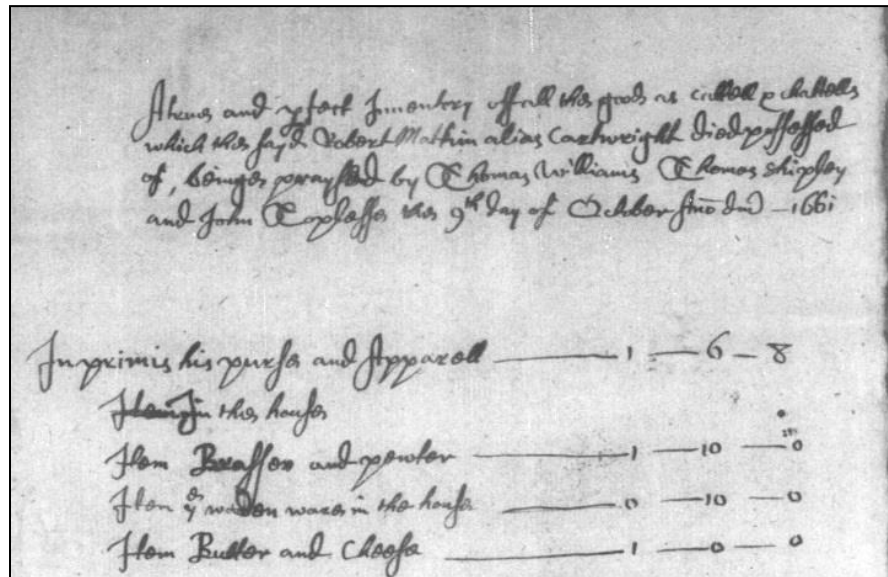 A true and pfect Inventory of all the goods as cattell & chattells
which the sayd Robert Mathin alias Cartwright died possessed
of, beinge praysed by Thomas Williams Thomas Shipley
and John the 9th day of October Anno dni - 1661
In primis his purse and Apparell — 1 — 6 — 8
Item in the house
Item Brasse and pewter — 1 — 10 — 0
Item ye wooden ware in the house — 0 — 10 — 0
Item Butter and Cheese — 1 — 0 — 0